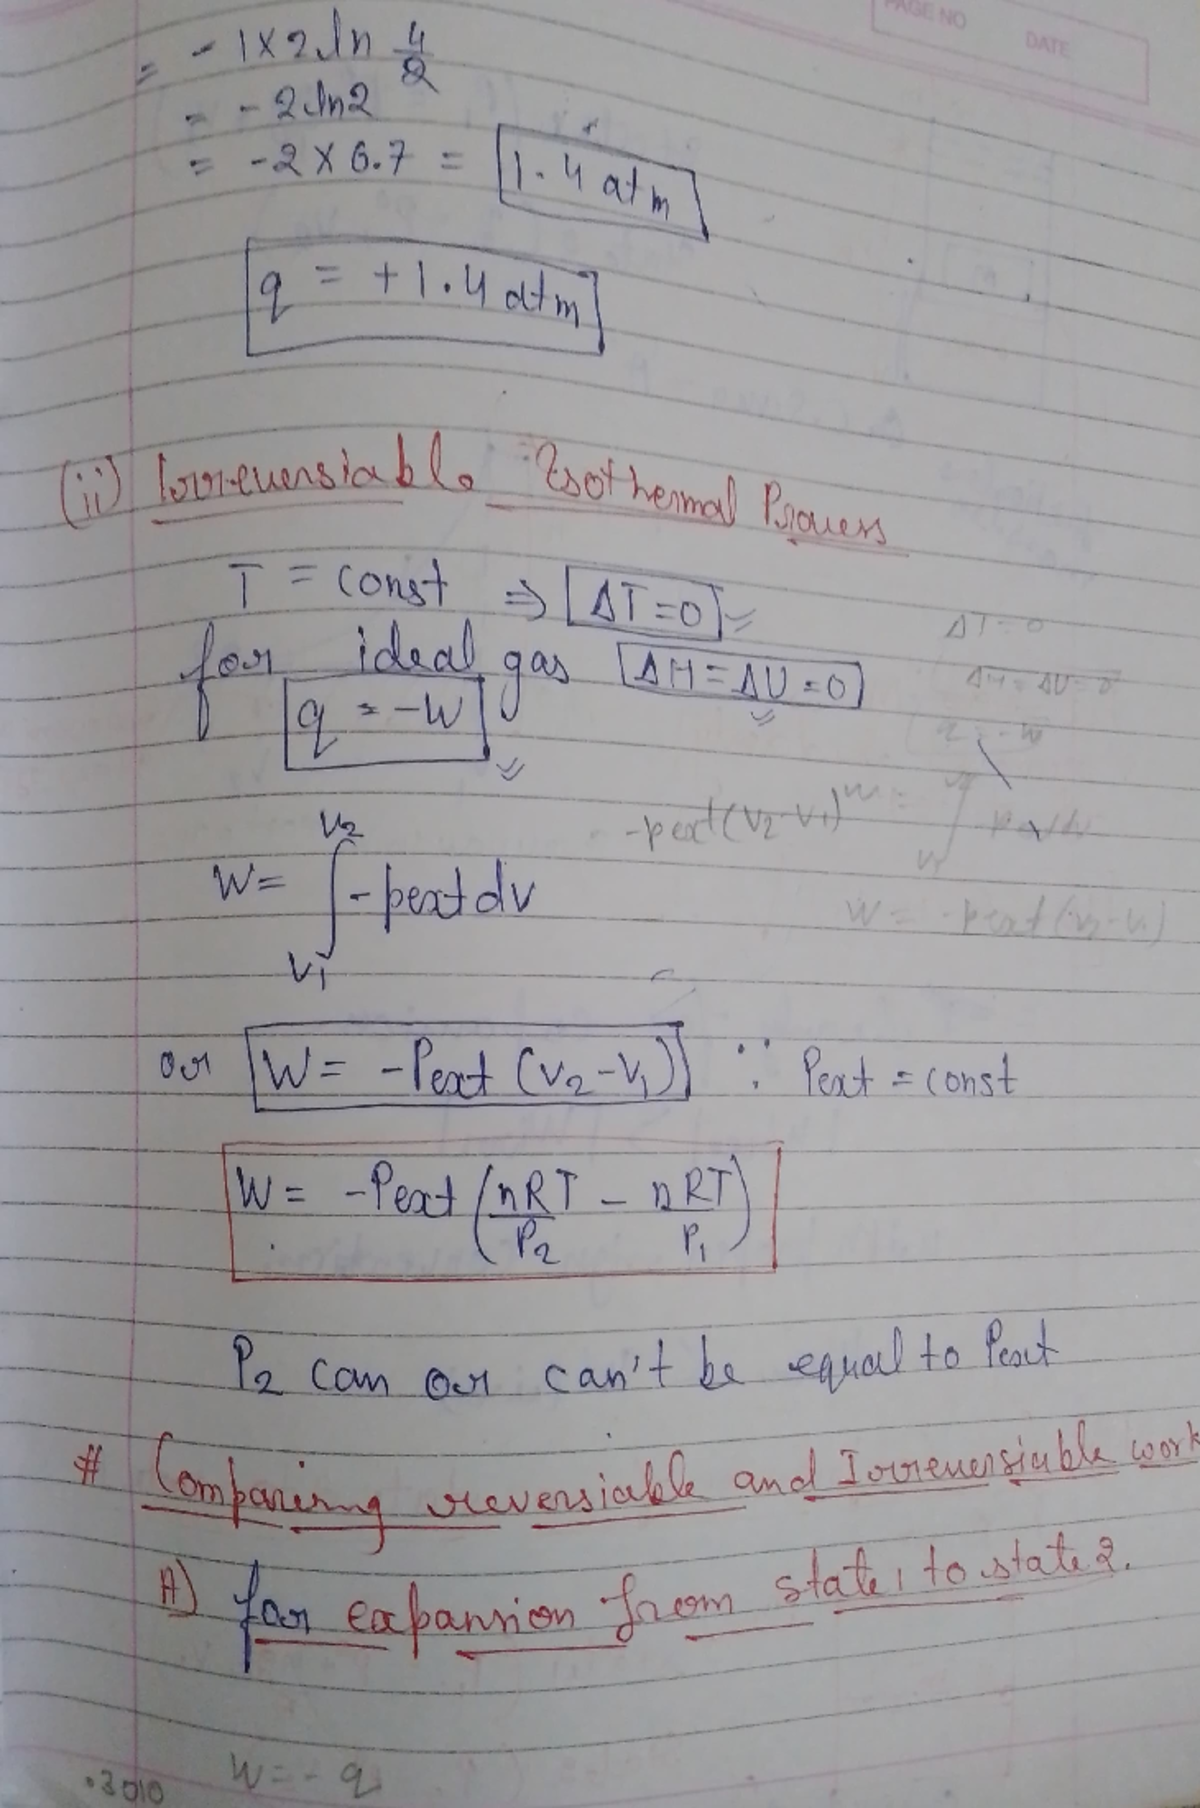 PAGE NO
DATE
= - 1 × 2 ln 4/2
= - 2 ln 2
= -2 × 0.7 = 1.4 atm
q = +1.4 atm
(ii) Irreversiable Isothermal Process
T = const ⇒ ΔT = 0
for ideal gas ΔH = ΔU = 0
q = -W
ΔT = 0
ΔH = ΔU = 0
q = -W
-pext(V2-V1)
W = ∫ V1 V2 -pext dv
W = -pext(V2-V1)
or W = -Pext (V2-V1) ∵ Pext = const
W = -Pext (nRT/P2 - nRT/P1)
P2 can or can't be equal to Pext
# Comparing reversiable and Irreversiable work
A) for expansion from state 1 to state 2.
W = - q